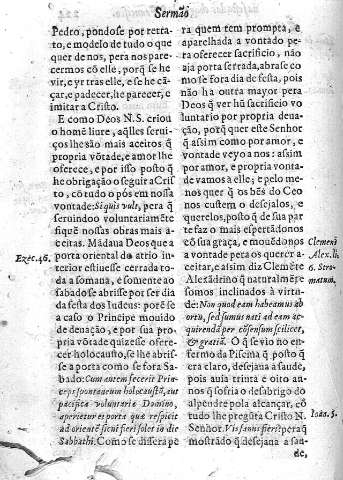 Sermão
Pedro, pondose por retra-
to, e modelo de tudo o que
quer de nos, pera nos pare-
cermos cõ elle, porq̃ se he
vir, e ey traz elle, e se he cã-
çar, e padecer, he parecer, e
imitar a Cristo.
E como Deos N. S. criou
o home liure, aq̃lles serui-
ços lhe saõ mais aceitos q̃
q̃ propria võtade, e amor lhe
oferece, e por isso posto q̃
lhe obrigação o seguir a Cris
to, cõ tudo o pós em nossa
vontade: Si quis vult, pera q̃
seruindoo voluntariamẽte
fiquẽ nossas obras mais a-
ceitas. Mãdaua Deos que a
porta oriental do atrio in-
terior estiuesse cerrada to-
da a somana, e somente ao
sabado se abrisse por ser dia
da festa dos Iudeus: porẽ se
a caso o Principe mouido
de deuação, e por sua pro-
pria võtade quizesse ofere-
cer holocausto, se lhe abris-
se a porta como se fora Sa-
bado: Cum autem fecerit Prin-
ceps spontaneum holocaustũ, aut
pacifica voluntaria Domino,
aperietur ei porta quæ respicit
ad orientẽ sicut fieri solet in die
Sabbathi. Como se dissera pe
Ezec. 46.
ra quem tem prompta, e
aparelhada a vontade pe-
ra oferecer sacrificio, não
aja porta serrada, abrase co
mo se fora dia de festa, pois
não ha outra mayor pera
Deos q̃ ver hũ sacrificio vo
luntario por propria deua-
ção, porq̃ quer este Senhor
q̃ assim como por amor, e
vontade veyo a nos: assim
por amor, e propria vonta-
de vamos à elle; e pelo me-
nos quer q̃ os bẽs do Ceo
nos custem o desejalos, e
querelos, posto q̃ de sua par
te faz o mais espertandonos
cõ sua graça, e mouẽdonos
a vontade pera os querer a-
ceitar, e assim diz Clemẽte
Alexãdrino q̃ naturalmẽte
somos inclinados à virtu-
de: Non quod eam habeamus ab
ortu, sed sumus nati ad eam ac-
quirendã per cõsensum scilicet,
& gratiã. O q̃ se vio no en-
fermo da Piscina q̃ posto q̃
era claro, desejaua a saude,
pois auia trinta e oito an-
nos q̃ sofria o desabrigo do
alpendre pola alcançar, cõ
tudo lhe pregũta Cristo N.
Senhor. Vis sanus fieri? pera q̃
mostrãdo q̃ desejana a sau-
de,
Clement
Alex. li.
6. Stro-
matum.
Ioan. 5.